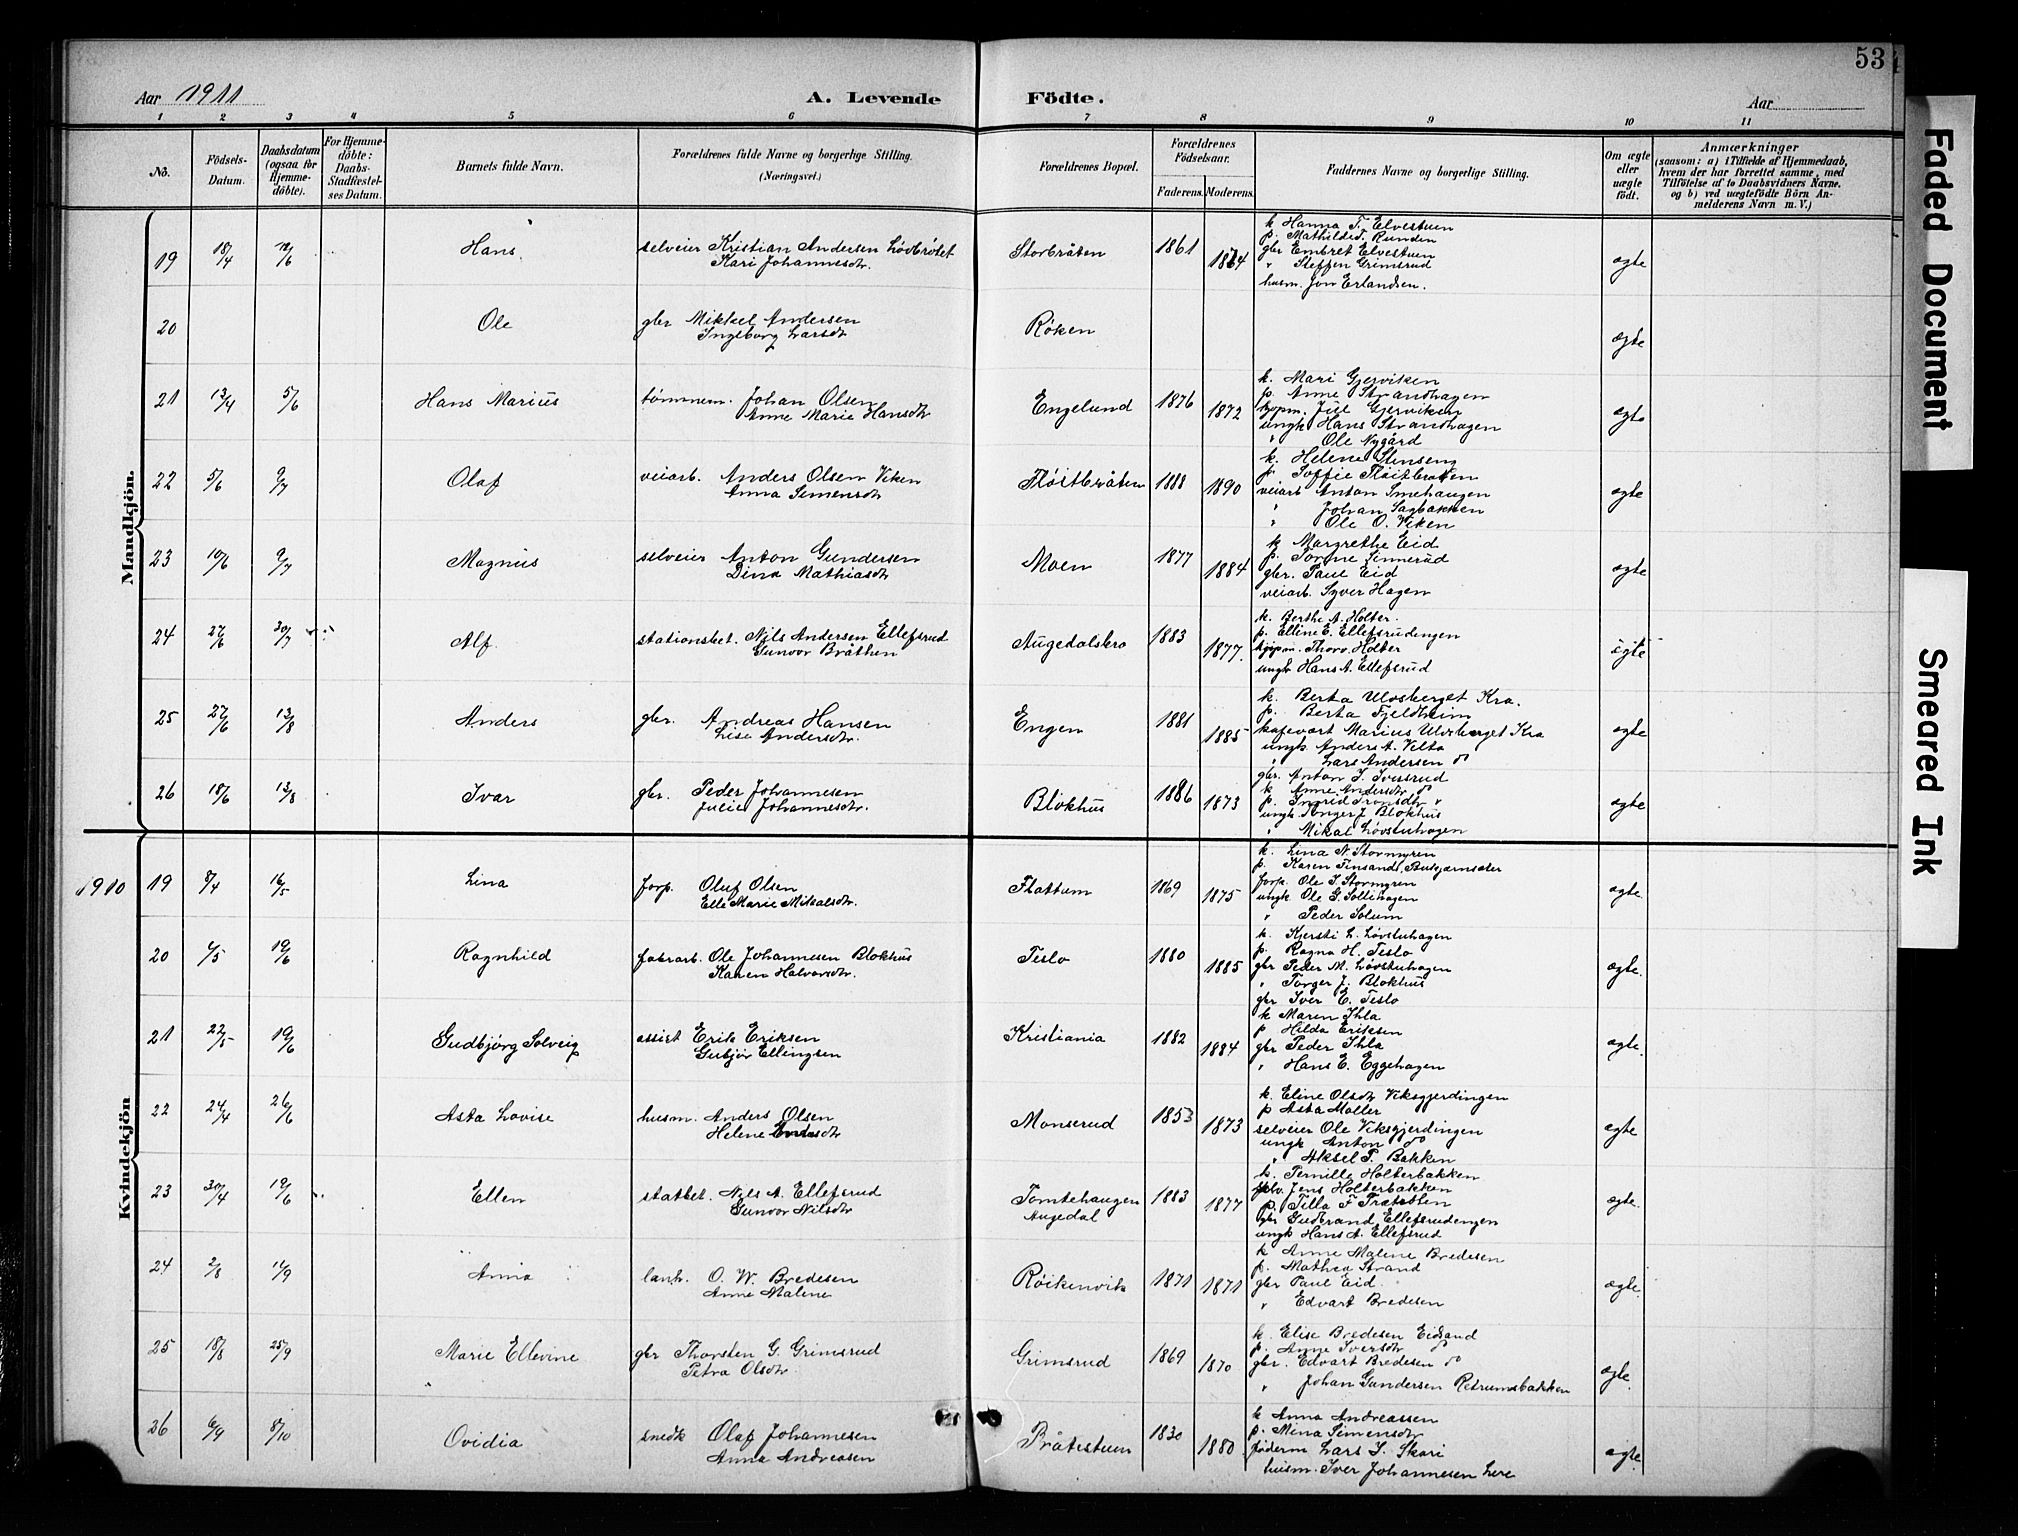 53
Aar 1911 A. Levende Födte. Aar
1 2 3 4 5 6 7 8 9 10 11
No.
Födsels-
Datum.
Daabsdatum
(ogsaa for
Hjemme-
döbte).
For Hjemme-
döbte:
Daabs-
Stadfæstel-
ses Datum.
Barnets fulde Navn.
Forældrenes fulde Navne og borgerlige Stilling.
(Næringsvei.)
Forældrenes Bopæl.
Forældrenes
Födselsaar.
Faderens. Moderens.
Faddernes Navne og borgerlige Stilling.
Om ægte
eller
uægte
födt.
Anmærkninger
(saasom: a) i Tilfælde af Hjemmedaab,
hvem der har forrettet samme, med
Tilföielse af to Daabsvidners Navne.
og b) ved uægtefödte Börn An-
melderens Navn m. V.)
Mandkjön.
19 18/4 /6 Hans selveier Kristian Andersen Lövbrötet
Kari Johannesdtr. Storbråten 1861 1864
k Hanna T. Elvestuen
p. Mathilde Runden
gbr Embret Elvestuen
" Steffen Grimsrud
husm. Jon Erlandsen.
ægte
20 Ole gbr Mikkel Andersen
Ingeborg Larsdtr Röken ægte
21 13/4 5/6 Hans Marius tømmerm. Johan Olsen
Anne Marie Hansdtr Engelund 1876 1872
k. Mari Gjerviken
p. Anne Strandhagen
kjøpm. Juel Gjerviken
ungk Hans Strandhagen
" Ole Nygård
ægte
22 5/6 9/7 Olaf veiarb. Anders Olsen Viken
Anna Simensdtr Fløitbråten 1888 1890
k. Helene Stenseng
p. Soffie Fløitbråten
veiarb Anton Smehaugen
" Johan Sagbakken
" Ole O. Viken
ægte
23 10/6 9/7 Magnus selveier Anton Gundersen
Dina Mathiasdtr Moen 1877 1884
k Margrethe Eid
p. Torine Sinnerud
gbr. Paul Eid
veiarb. Syver Hagen
ægte
24 27/6 30/7 Alf stationsbet. Nils Andersen Ellefsrud
Gunvor Bråthen Augedalsbro 1883 1877.
k. Berthe A. Holter.
p. Elline E. Ellefsrudengen
kjøpm. Thorv. Holter
ungk Hans A. Ellefsrud
ægte
25 27/6 13/8 Anders gbr. Andreas Hansen
Lise Andersdtr. Engen 1881 1885
k. Berta Ulvsberget Kra.
p. Berta Fjeldheim
kafevært Marius Ulvsberget Kra
ungk Anders A. Velta
" Lars Andersen do
ægte
26 18/6 13/8 Ivar gbr. Peder Johannesen
Julie Johannesdtr. Blokhus 1886 1873
gbr. Anton I. Iversrud
k Anne Andersdtr do
p. Ingrid Tronsdtr "
ungk. Torger J. Blokhus
" Mikal Løvstuhagen
ægte
Kvindekjön
1910 19 8/4 16/5 Lina forp. Oluf Olsen
Elle Marie Mikalsdtr. Flattum 1869 1875
k. Lina N. Stormyren
p. Karen Finsand,
forp. Ole J. Stormyren
ungk Ole G. Sollihagen
" Peder Solum
ægte.
20 /5 19/6 Ragnhild fabrarb. Ole Johannesen Blokhus
Karen Halvorsdtr. Teslo 1880 1885
k. Kjersti L. Løvstuhagen
p. Ragna H. Teslo
gbr Peder M. Løvstuhagen
" Torger J. Blokhus
gbr Iver E. Teslo
ægte.
21 22/5 19/6 Gudbjørg Solveig assist Erik Eriksen
Gubjør Ellingsen Kristiania 1882 1884
k Maren Ihla
p Hilda Eriksen
gbr Peder Ihla
" Hans E. Eggehagen
ægte.
22 24/4 26/6 Asta Lovise husm. Anders Olsen
Helene Monserud 1853 1873
k. Eline Olsdtr Viksgjerdingen
p Asta Møller
selveier Ole Viksgjerdingen
ungk Anton do
" Aksel P. Bakken
ægte
23 30/4 19/6 Ellen statbet. Nils A. Ellefsrud
Gunvor Nilsdtr Tomtehaugen
Augedal 1883 1877
k. Pernille Holterbakken
Jens Holterbakken
p. Tilla F
gbr Gudbrand Ellefsrudengen
ungk Hans A. Ellefsrud
ægte.
24 2/8 /9 Anna lanh. O. W. Bredesen
Anne Malene Røikenvik 1871 1871
k Anne Malene Bredesen
p. Mathea Strand
gbr Paul Eid.
" Edvart Bredesen
ægte.
25 18/8 25/9 Marie Ellevine gbr Thorsten G. Grimsrud
Petra Olsdtr Grimsrud 1869 1870
k. Elise Bredesen Eidsand
p. Anne Iversdtr do
gbr. Edvart Bredesen do
" Johan Gundersen Retrumsbakken
ægte.
26 6/9 8/10 Ovidia snedk Olaf Johannesen
Anna Andreasen Bråtestuen 1830 1880
k Anna Andreassen
p. Mina Simensdtr
föderm Lars I. Skari
husm. Iver Johannesen Lere
ægte.
Faded Document
Smeared Ink